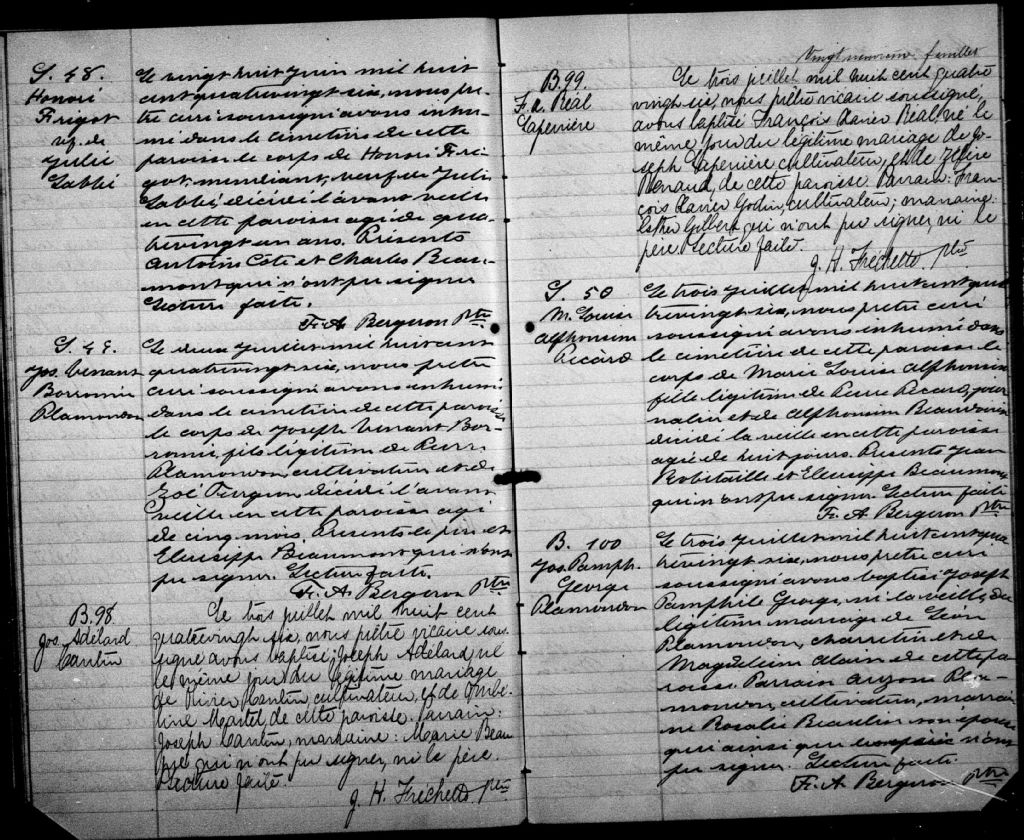 S. 48.
Honoré
Frigot
vf. de
Julie
Labbé
Le vingt huit Juin mil huit
cent quatrevingt six, nous prê-
tre curé soussigné avons inhu-
mé dans le cimetière de cette
paroisse le corps de Honoré Fri-
got, mendiant, veuf de Julie
Labbé décédé l'avant veille
en cette paroisse agé de qua-
trevingt un ans. Présents
Antoine Coté et Charles Beau-
mont qui n'ont pu signer
Lecture faite.
Fr. A. Bergeron Ptre
S. 49.
Jos. Venant
Borromée
Plamondon
Le deux Juillet mil huit cent
quatrevingt six, nous prêtre
curé soussigné avons inhumé
dans le cimetière de cette paroisse
le corps de Joseph Venant Bor-
romé, fils légitime de Pierre
Plamondon cultivateur et de
Zoé Ferguson décédé l'avant
veille en cette paroisse agé
de cinq mois. Présents le père et
Eleusippe Beaumont qui n'ont
pu signer. Lecture faite.
Fr. A. Bergeron Ptre
B. 98.
Jos. Adélard
Cantin
Le trois juillet mil huit cent
quatrevingt six, nous prêtre vicaire sous-
signé avons baptisé Joseph Adélard, né
le même jour du légitime mariage
de Cantin, cultivateur, et de Ombé-
line Martel de cette paroisse. Parrain:
Joseph Cantin, marraine: Marie Beau
pré qui n'ont pu signer, ni le père.
Lecture faite.
J. H. Frechette Ptre
Vingt neuvieme feuillet
B. 99.
F. X. Réal
Laperrière
Le trois juillet mil huit cent quatre
vingt six, nous prêtre vicaire soussigné,
avons baptisé François Xavier Réal, né le
même jour du légitime mariage de Jo-
seph Laperrière cultivateur, et de Zéfire
Renaud, de cette paroisse. Parrain: Fran-
çois Xavier Godin, cultivateur; marraine:
Esther Gilbert qui n'ont pu signer, ni le
père. Lecture faite.
J. H. Frechette Ptre
S. 50
M. Louise
Alphonsine
Picard
Le trois Juillet mil huit cent qua
trevingt six, nous prêtre curé
soussigné avons inhumé dans
le cimetière de cette paroisse le
corps de Marie Louise Alphonsine
fille légitime de Pierre Picard, jour
nalier et de Alphonsine Beaudoin
décédé la veille en cette paroisse
agée de huit jours. Présents Jean
Robitaille et Eleusippe Beaumont
qui n'ont pu signer. Lecture faite
Fr. A. Bergeron Ptre
B. 100
Jos. Pamph.
George
Plamondon
Le trois Juillet mil huit cent qua
trevingt six, nous prêtre curé
soussigné avons baptisé Joseph
Pamphile George, né la veille, du
légitime mariage de Léon
Plamondon, charretier et de
Magdeleine Alain de cette pa-
roisse. Parrain Plam-
mondon, cultivateur, marrai
ne Rosalie Beaulieu son épouse
qui ainsi que le père n'ont
pu signer. Lecture faite.
Fr. A. Bergeron Ptre